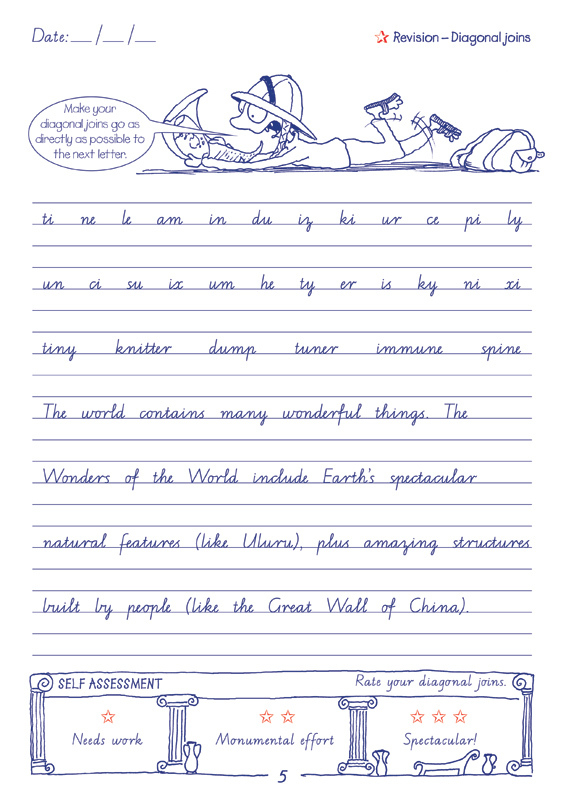 Date: __/__/__
☆ Revision – Diagonal joins
Make your
diagonal joins go as
directly as possible to
the next letter.
ti ne le am in du iz ki ur ce pi ly
un ci su ix um he ty er is ky ni xi
tiny knitter dump tuner immune spine
The world contains many wonderful things. The
Wonders of the World include Earth's spectacular
natural features (like Uluru), plus amazing structures
built by people (like the Great Wall of China).
SELF ASSESSMENT
Rate your diagonal joins.
☆ ☆ ☆ ☆ ☆ ☆
Needs work Monumental effort Spectacular!
5